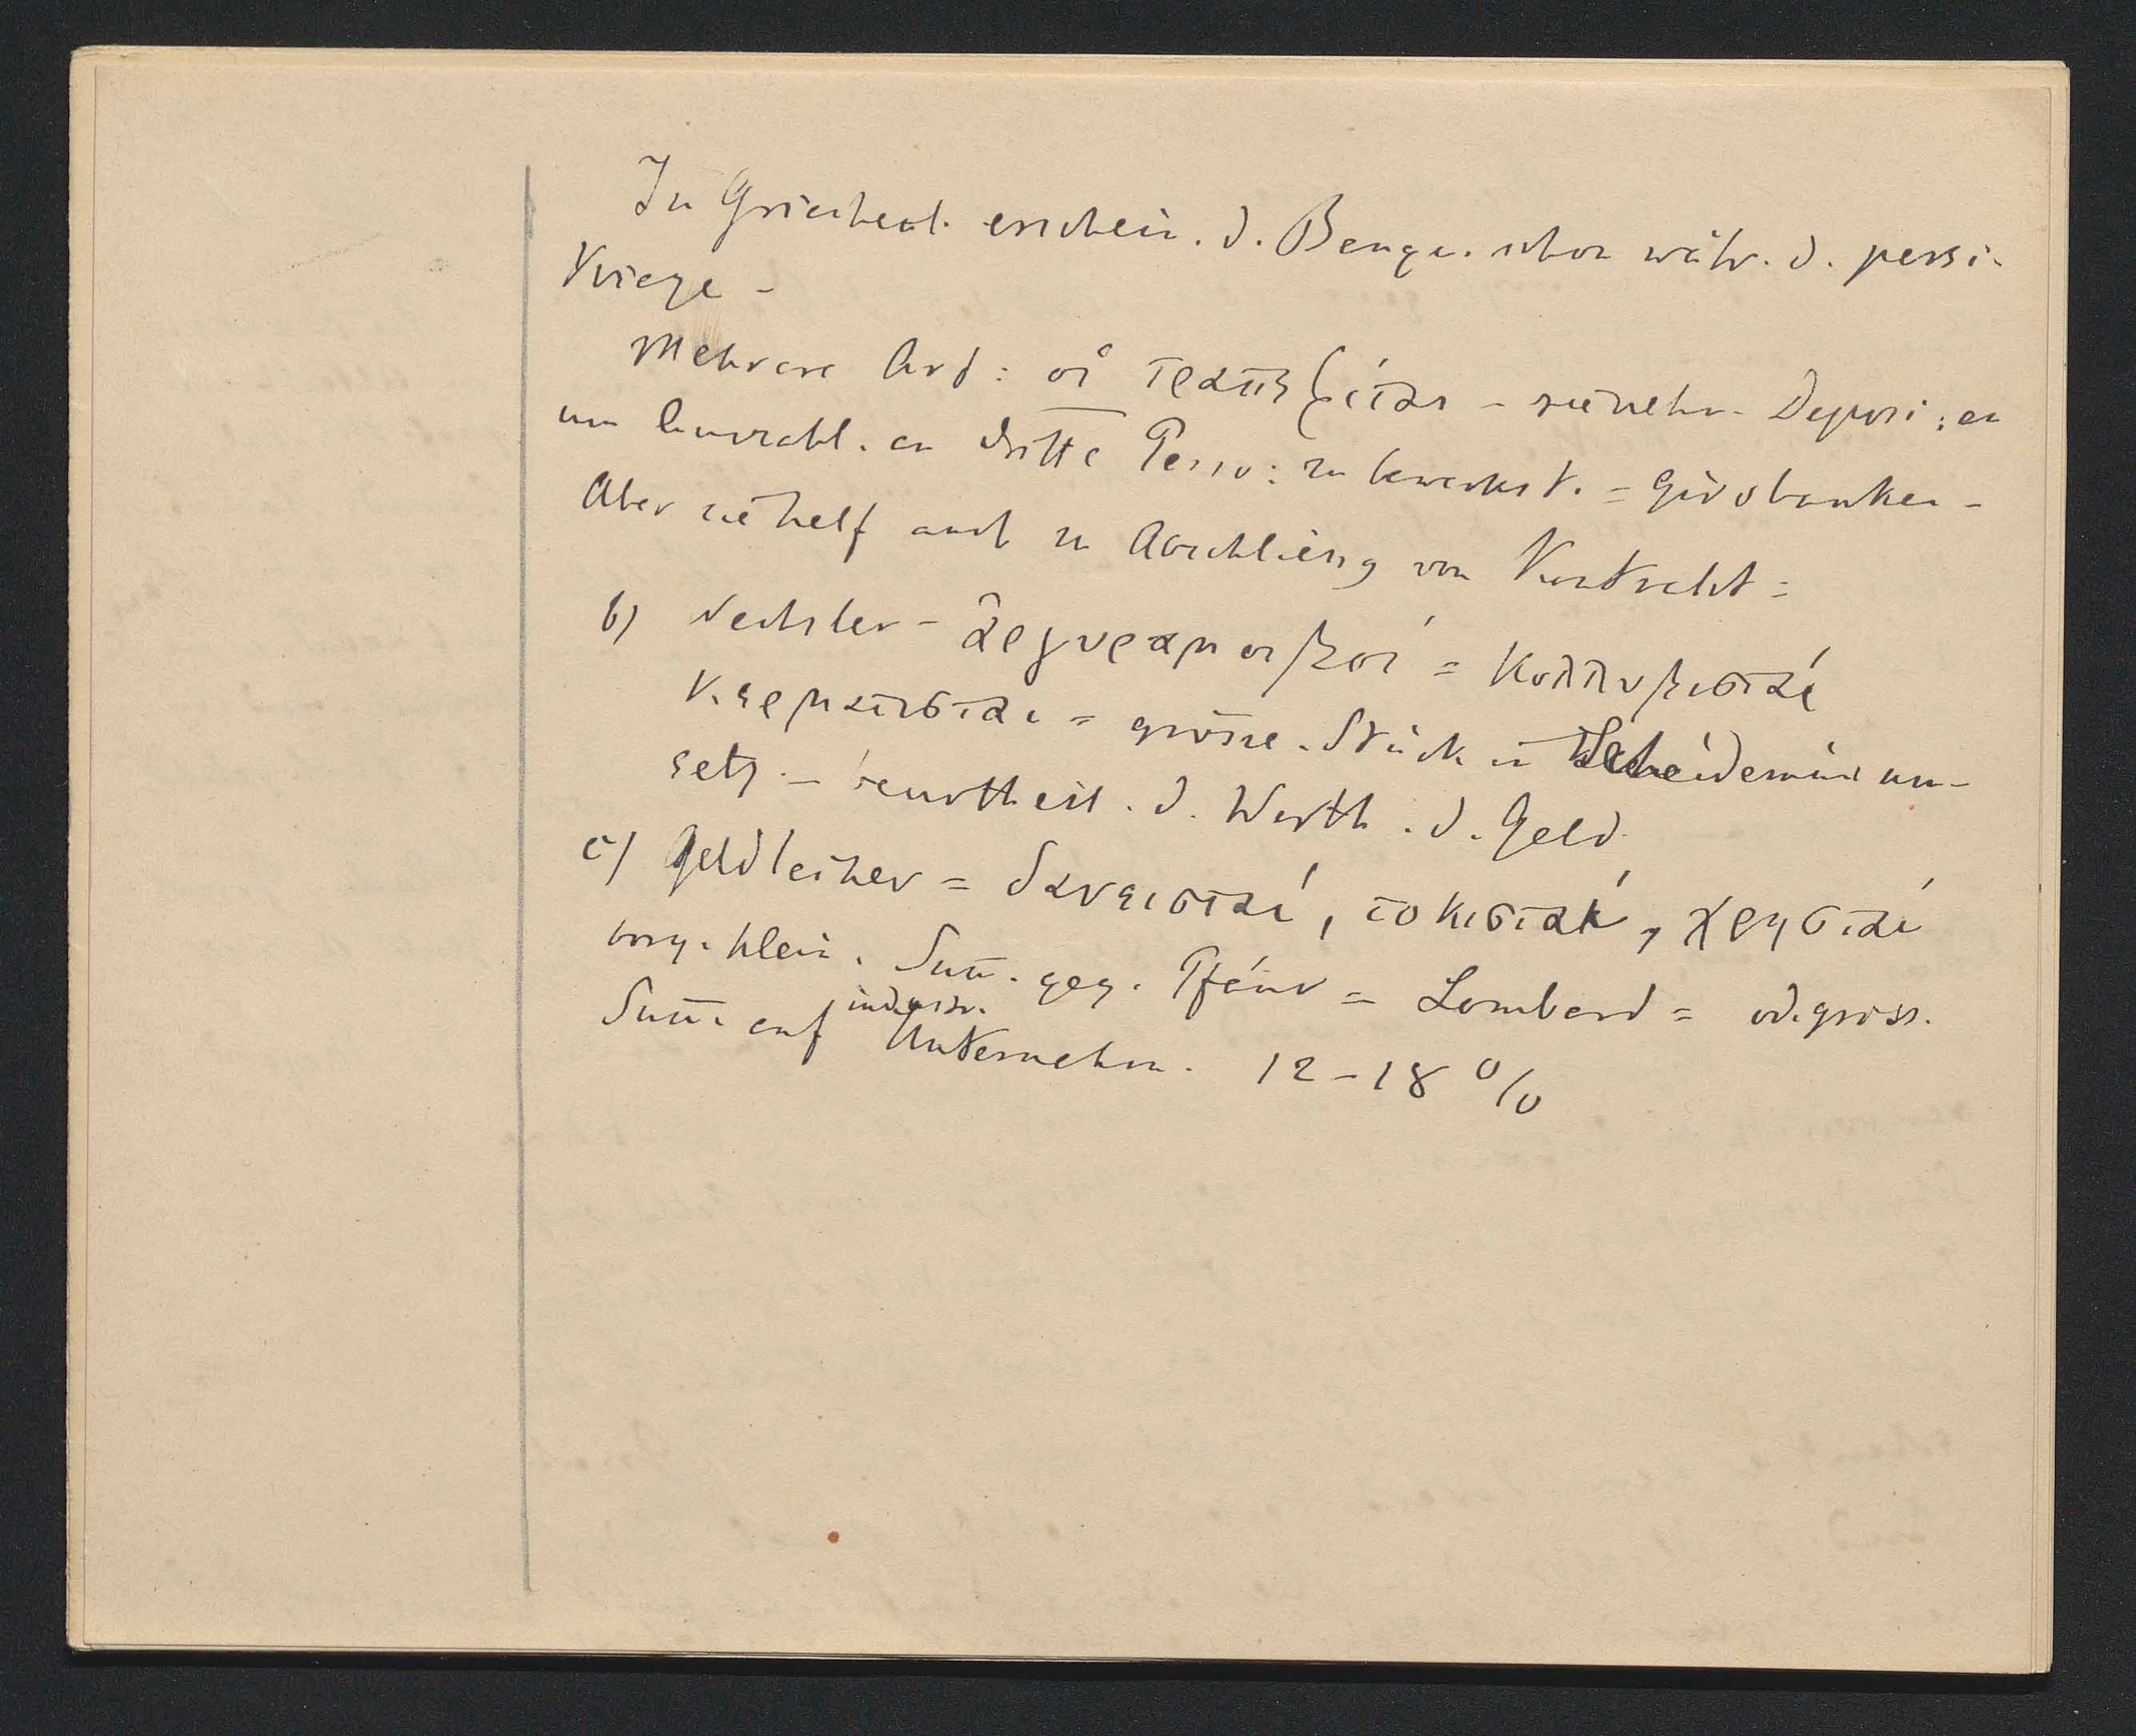 In Griechenl. erschein. d. Banqu. schon währ. d. persi.
Kriege -
Mehrere Art: οἱ τραπεζίται - sie nehm. Deposi: an
um Auszahl. an dritte Perso: zu bewerkst. = Girobanken -
Aber sie helf auch zu Abschliess von Kontrakt =
b) Wechsler - ἀργυραμοιβοί = Κολλυβισταί
κερματισται = grösse. Stück in Scheidemünz um-
setz. - beurtheil. d. Werth. d. Geld.
c) Geldleiher = δανεισταί, τοκισταί, χρησταί
borg. klein. Sum̅. geg. Pfänd = Lombard = od. gröss.
Sum̅. auf industr. Unternehm. 12-18 %